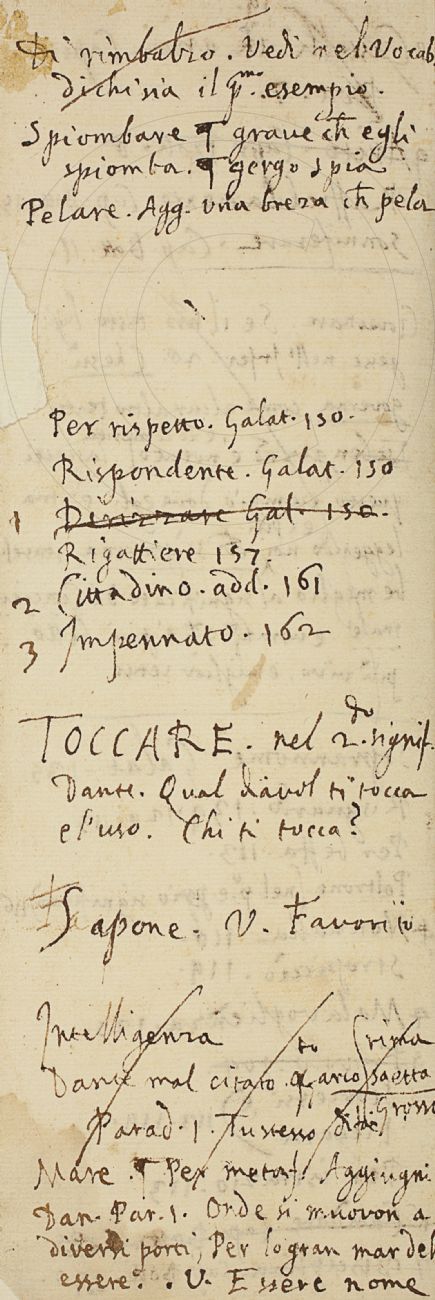 Di rimbalzo. Vedi nel Vocab
dichisia il pmo. esempio.
Spiombare ¶ grave ch̄ egli
spiomba. ¶ gergo spia
Pelare. Agg. una brezza ch̄ pela
Per rispetto. Galat. 130.
Rispondente. Galat. 130
1 Dirizzare Gal. 130.
Rigattiere 157.
2 Cittadino. add. 161
3 Impennato. 162
TOCCARE. nel 2.do signif.
Dante. Qual diavol ti tocca
e l'uso. Chi ti tocca?
Sapone. V. Favorito
Intelligenza to (rima
Dante mal citato. qsto arco saetta
Parad. 1. Tu stesso diffe Grosso
Mare. ¶ Per metaf. Aggiugni
Dan. Par. 1. Onde si muovon a
diversi porti, Per lo gran mar del
essere. . V. Essere nome